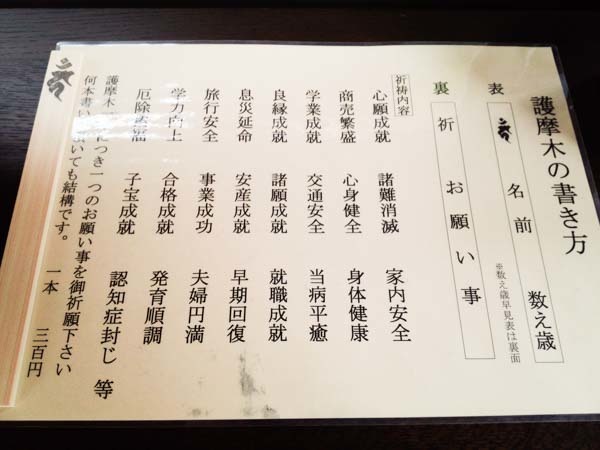 護摩木の書き方
表 名前 数え歳
※数え歳早見表は裏面
裏 祈 お願い事
祈祷内容
心願成就 諸難消滅 家内安全
商売繁盛 心身健全 身体健康
学業成就 交通安全 当病平癒
良縁成就 諸願成就 就職成就
息災延命 安産成就 早期回復
旅行安全 事業成功 夫婦円満
学力向上 合格成就 発育順調
厄除 子宝成就 認知症封じ 等
護摩木 につき一つのお願い事を御祈願下さい
何本書い 頂いても結構です。 一本 三百円